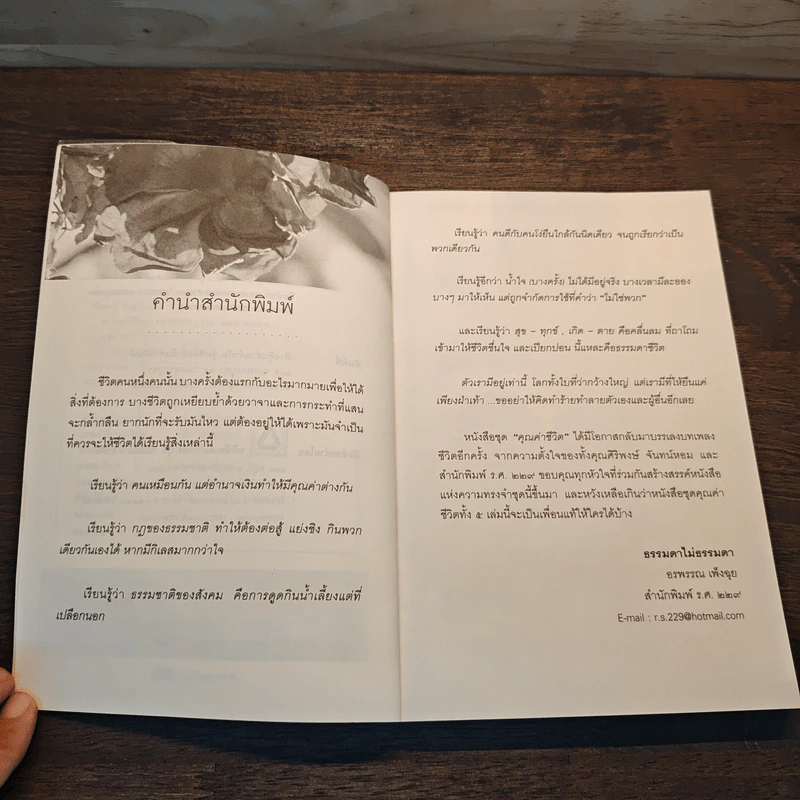 คำนำสำนักพิมพ์
ชีวิตคนหนึ่งคนนั้น บางครั้งต้องแรกกับอะไรมากมายเพื่อให้ได้
สิ่งที่ต้องการ บางชีวิตถูกเหยียบย่ำด้วยวาจาและการกระทำที่แสน
จะกล้ำกลืน ยากนักที่จะรับมันไหว แต่ต้องอยู่ให้ได้เพราะมันจำเป็น
ที่ควรจะให้ชีวิตได้เรียนรู้สิ่งเหล่านี้
เรียนรู้ว่า คนเหมือนกัน แต่อำนาจเงินทำให้มีคุณค่าต่างกัน
เรียนรู้ว่า กฎของธรรมชาติ ทำให้ต้องต่อสู้ แย่งชิง กินพวก
เดียวกันเองได้ หากมีกิเลสมากกว่าใจ
เรียนรู้ว่า ธรรมชาติของสังคม คือการดูดกินน้ำเลี้ยงแต่ที่
เปลือกนอก
เรียนรู้ว่า คนดีกับคนโง่ยืนใกล้กันนิดเดียว จนถูกเรียกว่าเป็น
พวกเดียวกัน
เรียนรู้อีกว่า น้ำใจ (บางครั้ง) ไม่ได้มีอยู่จริง บางเวลามีละออง
บางๆ มาให้เห็น แต่ถูกจำกัดการใช้ที่คำว่า "ไม่ใช่พวก"
และเรียนรู้ว่า สุข - ทุกข์ , เกิด - ตาย คือคลื่นลม ที่ถาโถม
เข้ามาให้ชีวิตชื่นใจ และเปียกปอน นี้แหละคือธรรมดาชีวิต
ตัวเรามีอยู่เท่านี้ โลกทั้งใบที่ว่ากว้างใหญ่ แต่เรามีที่ให้ยืนแค่
เพียงฝ่าเท้า ...ขออย่าให้คิดทำร้ายทำลายตัวเองและผู้อื่นอีกเลย
หนังสือชุด "คุณค่าชีวิต" ได้มีโอกาสกลับมาบรรเลงบทเพลง
ชีวิตอีกครั้ง จากความตั้งใจของทั้งคุณศิริพงษ์ จันทน์หอม และ
สำนักพิมพ์ ร.ศ. ๒๒๙ ขอบคุณทุกหัวใจที่ร่วมกันสร้างสรรค์หนังสือ
แห่งความทรงจำชุดนี้ขึ้นมา และหวังเหลือเกินว่าหนังสือชุดคุณค่า
ชีวิตทั้ง ๕ เล่มนี้จะเป็นเพื่อนแท้ให้ใครได้บ้าง
ธรรมดาไม่ธรรมดา
อรพรรณ เพ็งฉุย
สำนักพิมพ์ ร.ศ. ๒๒๙
E-mail : r.s.229@hotmail.com